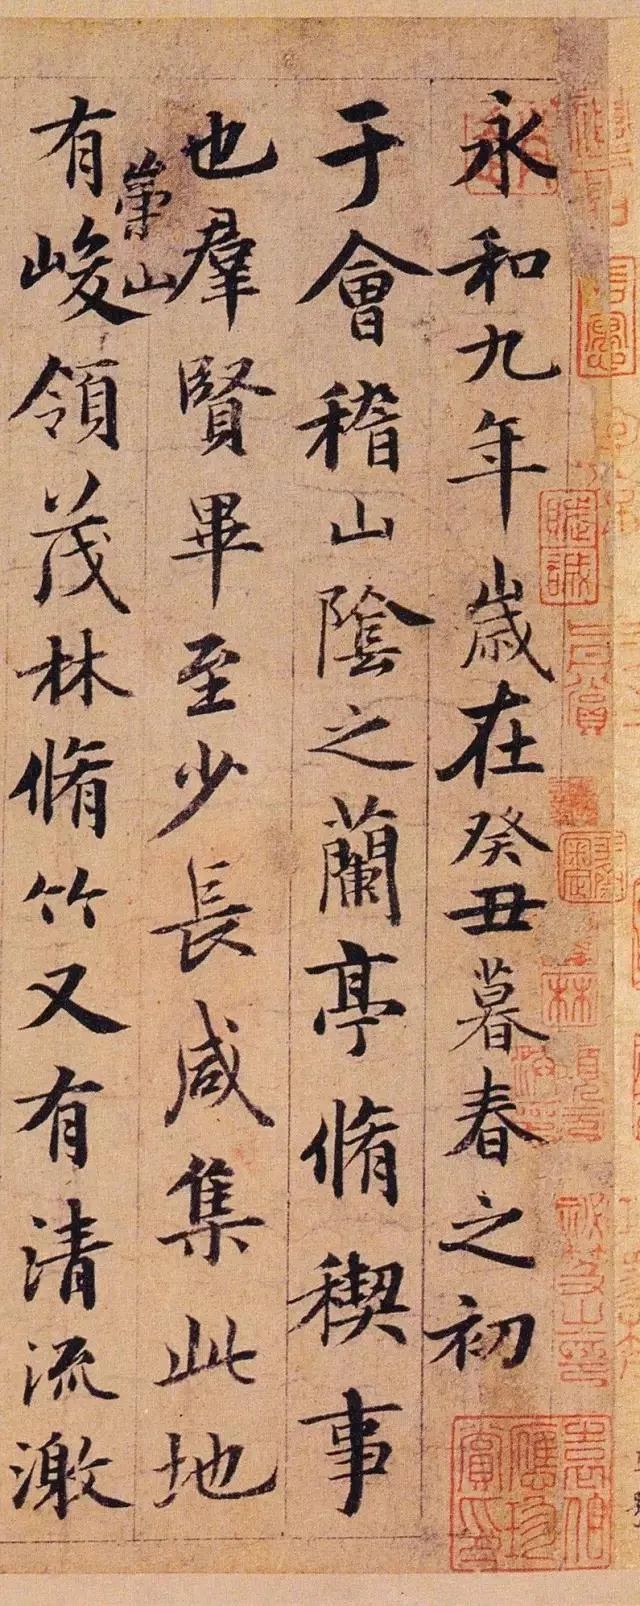 永和九年歲在癸丑暮春之初
于會稽山陰之蘭亭脩稧事
也羣賢畢至少長咸集此地
崇山
有峻領茂林脩竹又有清流激